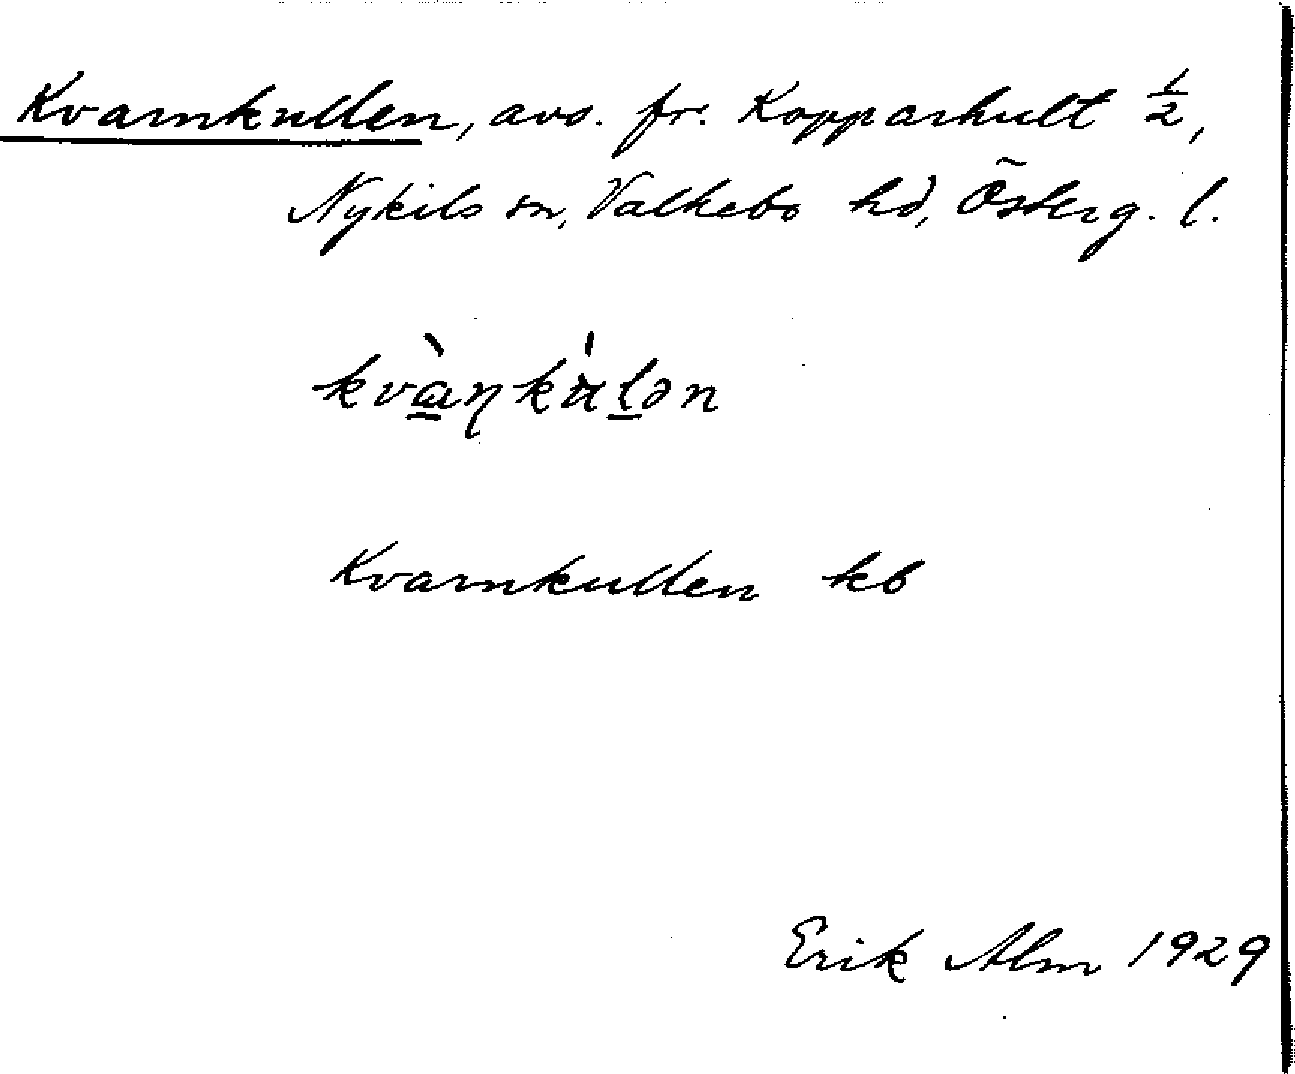 Kvarnkullen, avs. fr. Kopparhult 1/2,
Nykils sn, Valkebo hd, Österg. l.
Kvarnkullen kb
Erik Alm 1929